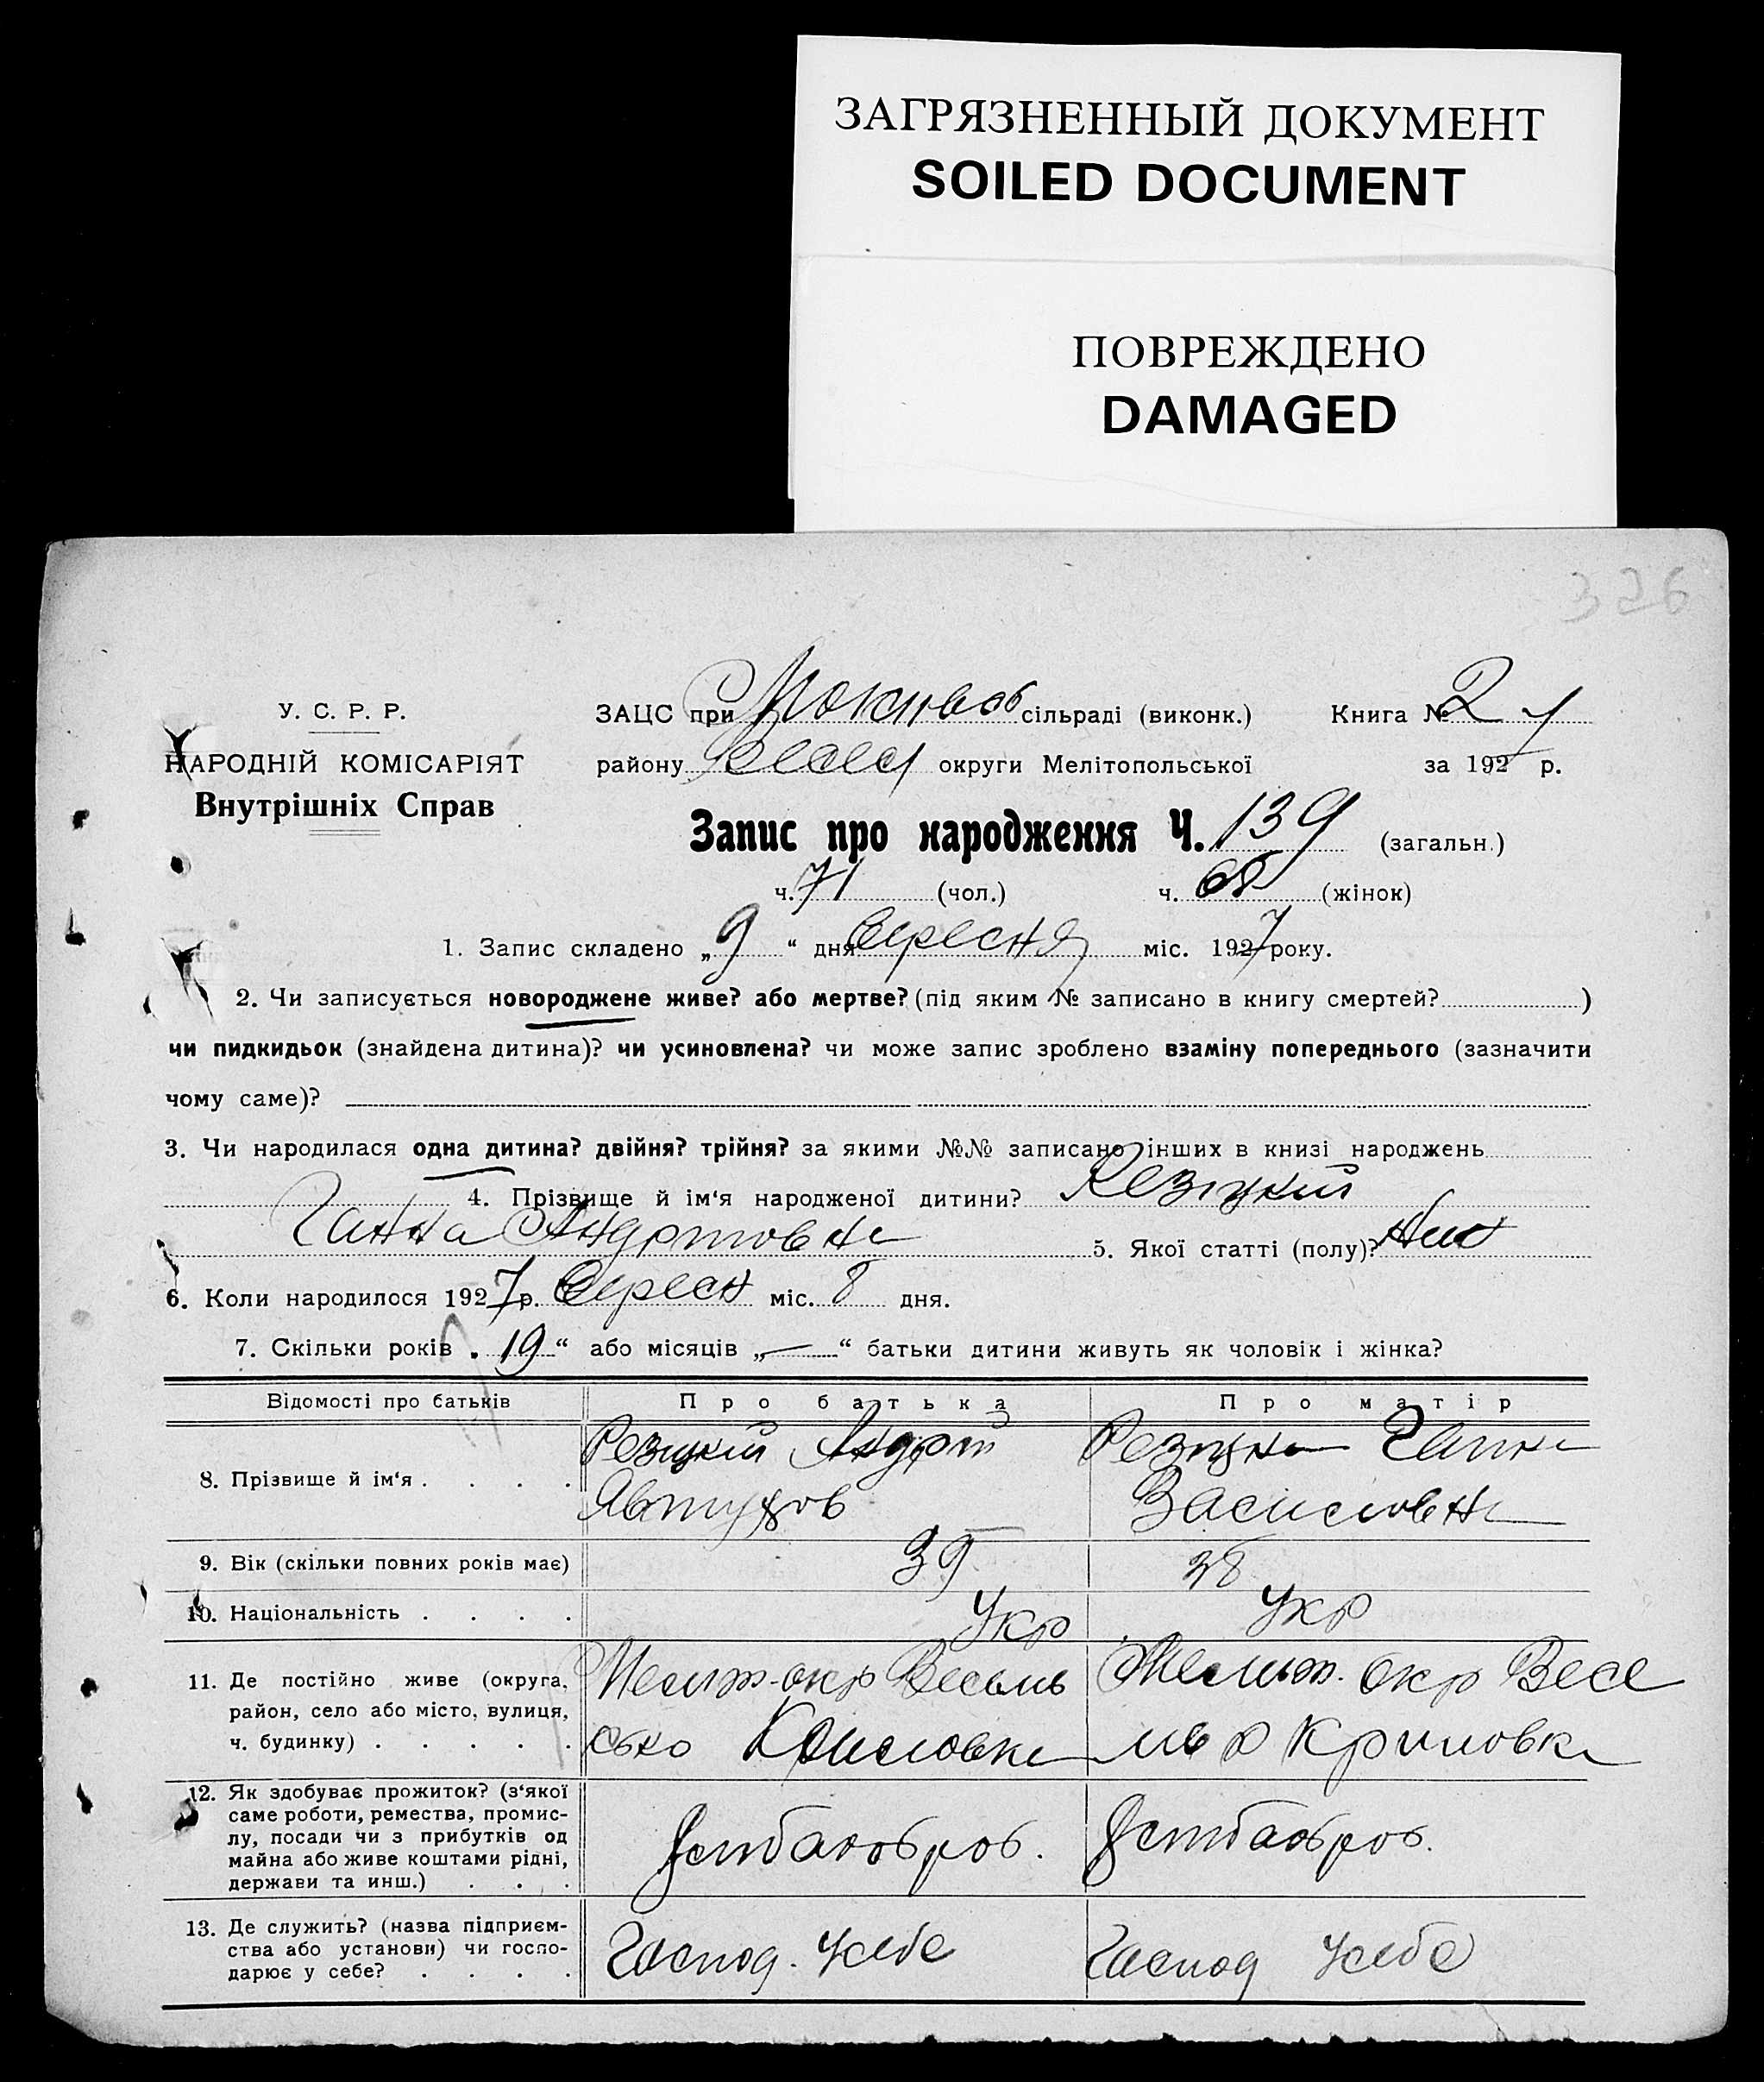 ЗАГРЯЗНЕННЫЙ ДОКУМЕНТ
SOILED DOCUMENT
ПОВРЕЖДЕНО
DAMAGED
326
У. С. Р. Р.
НАРОДНІЙ КОМІСАРІЯТ
Внутрішніх Справ
ЗАЦС при сільраді (виконк.) Книга № 2
району округи Мелітопольської за 1927 р.
Запис про народження Ч. 139 (загальн.)
ч. 71 (чол.) ч. 68 (жінок)
1. Запис складено „9“ дня Вересня міс. 1927 року.
2. Чи записується новороджене живе? або мертве? (під яким № записано в книгу смертей? )
чи пидкидьок (знайдена дитина)? чи усиновлена? чи може запис зроблено взаміну попереднього (зазначити
чому саме)?
3. Чи народилася одна дитина? двійня? трійня? за якими №№ записано інших в книзі народжень
4. Прізвище й ім‘я народженої дитини? Резицкий
Ганна Андріовна 5. Якої статті (полу)? Жин
6. Коли народилося 1927 р. Вересн міс. 8 дня.
7. Скільки років „19“ або місяців „—“ батьки дитини живуть як чоловік і жінка?
Відомості про батьків Про батька Про матір
8. Прізвище й ім‘я . . . . Резицкий Андрій Резицка Ганна
Явтухов Василовна
9. Вік (скільки повних років має) 39 38
10. Національність . . . . Укр Укр
11. Де постійно живе (округа, Мелит-окр Мелит. окр Весе
район, село або місто, вулиця,
ч. будинку) . . . . . Криловка
12. Як здобуває прожиток? (з‘якої
саме роботи, ремества, промис-
лу, посади чи з прибутків од
майна або живе коштами рідні,
держави та инш.) . . .
13. Де служить? (назва підприєм-
ства або установи) чи госпо-
дарює у себе? . . . . Господ. у себе Господ у себе